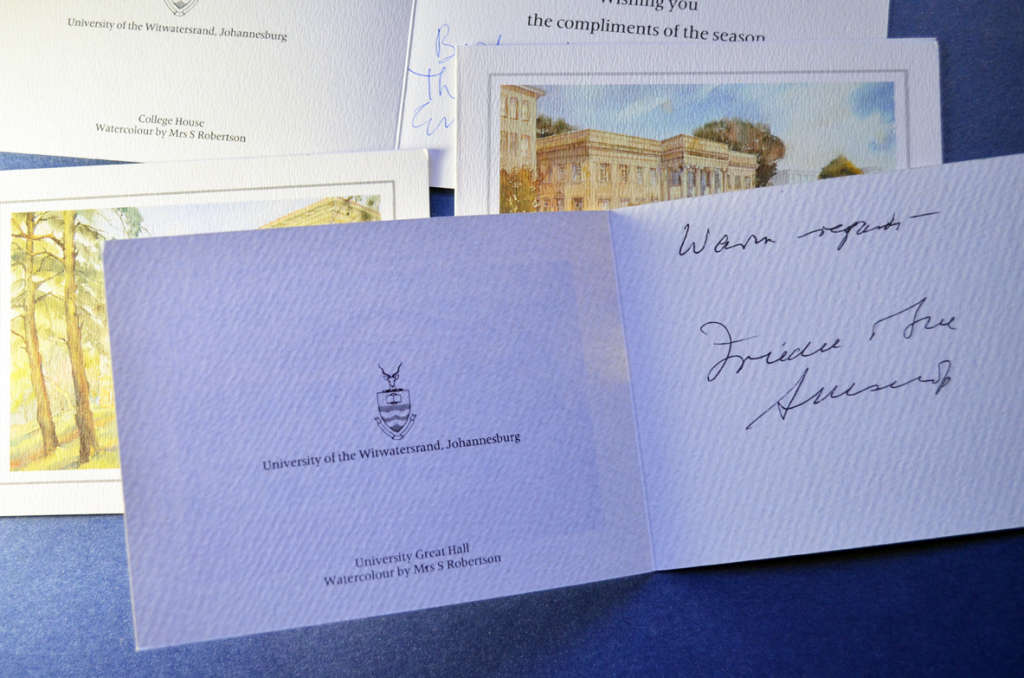 University of the Witwatersrand, Johannesburg
College House
Watercolour by Mrs S Robertson
Wishing you
the compliments of the season
Th
University of the Witwatersrand, Johannesburg
University Great Hall
Watercolour by Mrs S Robertson
Warm regards